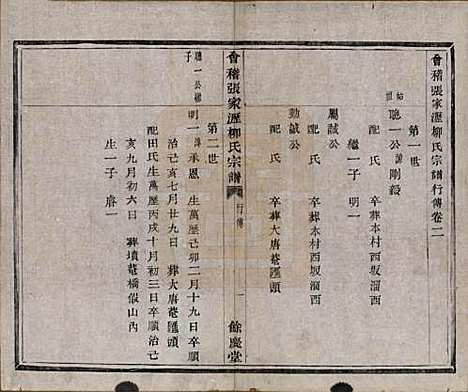 會稽張家瀝柳氏宗譜行傳卷二
第一世
始祖
聽一公諱剛毅
配 氏 卒葬本村西坂溜西
繼一子 明一
屬誠公
配 氏 卒葬本村西坂溜西
勤誠公
配 氏 卒葬大唐菴匯頭
會稽張家瀝柳氏宗譜
行傳
一
餘慶堂
第二世
聽一公繼子
明一諱承恩 生萬歷己卯二月十九日卒順
治己亥七月廿九日 葬大唐菴匯頭
配田氏生萬歷丙戌十月初三日卒順治己
亥九月初六日 葬墳菴橋假山內
生一子 唐一